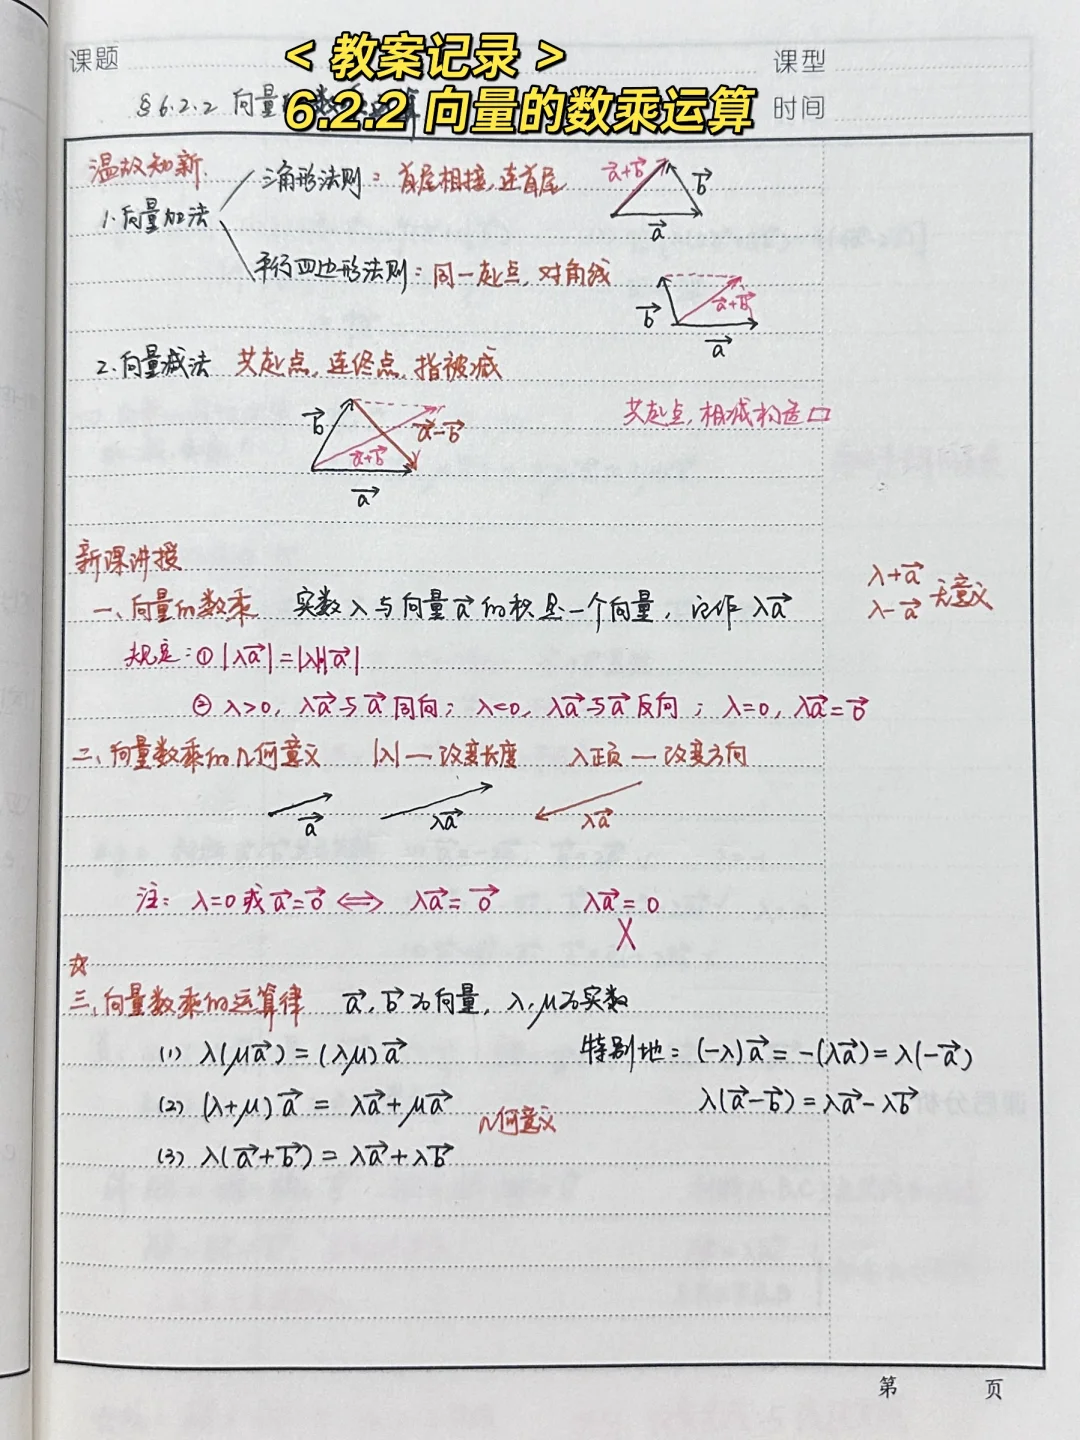 课题
< 教案记录 >
课型
§6.2.2 向量的数乘运算
6.2.2 向量的数乘运算
时间
温故知新.
1.向量加法
三角形法则：首尾相接，连首尾
a⃗+b⃗ b⃗
a⃗
平行四边形法则：同一起点，对角线
b⃗ a⃗+b⃗
a⃗
2.向量减法 共起点，连终点，指被减
共起点，相减构造□
b⃗ a⃗-b⃗
a⃗+b⃗
a⃗
新课讲授
一、向量的数乘 实数λ与向量a⃗的积是一个向量，记作λa⃗
λ+a⃗
λ-a⃗ 无意义
规定：① |λa⃗|=|λ||a⃗|
② λ>0，λa⃗与a⃗同向；λ<0，λa⃗与a⃗反向；λ=0，λa⃗=0⃗
二、向量数乘的几何意义 |λ|—改变长度 λ正负—改变方向
a⃗ λa⃗ λa⃗
注：λ=0或a⃗=0⃗ ⟺ λa⃗=0⃗ λa⃗=0
X
☆
三、向量数乘的运算律 a⃗，b⃗为向量，λ，μ为实数
(1) λ(μa⃗)=(λμ)a⃗ 特别地：(-λ)a⃗=-(λa⃗)=λ(-a⃗)
(2) (λ+μ)a⃗=λa⃗+μa⃗ λ(a⃗-b⃗)=λa⃗-λb⃗
几何意义
(3) λ(a⃗+b⃗)=λa⃗+λb⃗
第 页